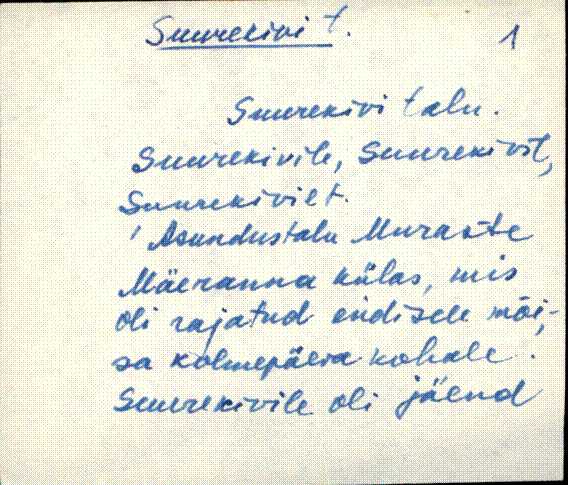 Suurekivi t.
1
Suurekivi talu.
Suurekivile, Suurekivil,
Suurekivilt.
' Asundustalu Muraste
Mäeranna külas, mis
oli rajatud endisele mõi-
sa kolmepäeva kohale.
Suurekivile oli jäend